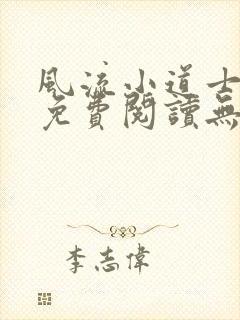 風流小道士
免費閱讀無
李志偉